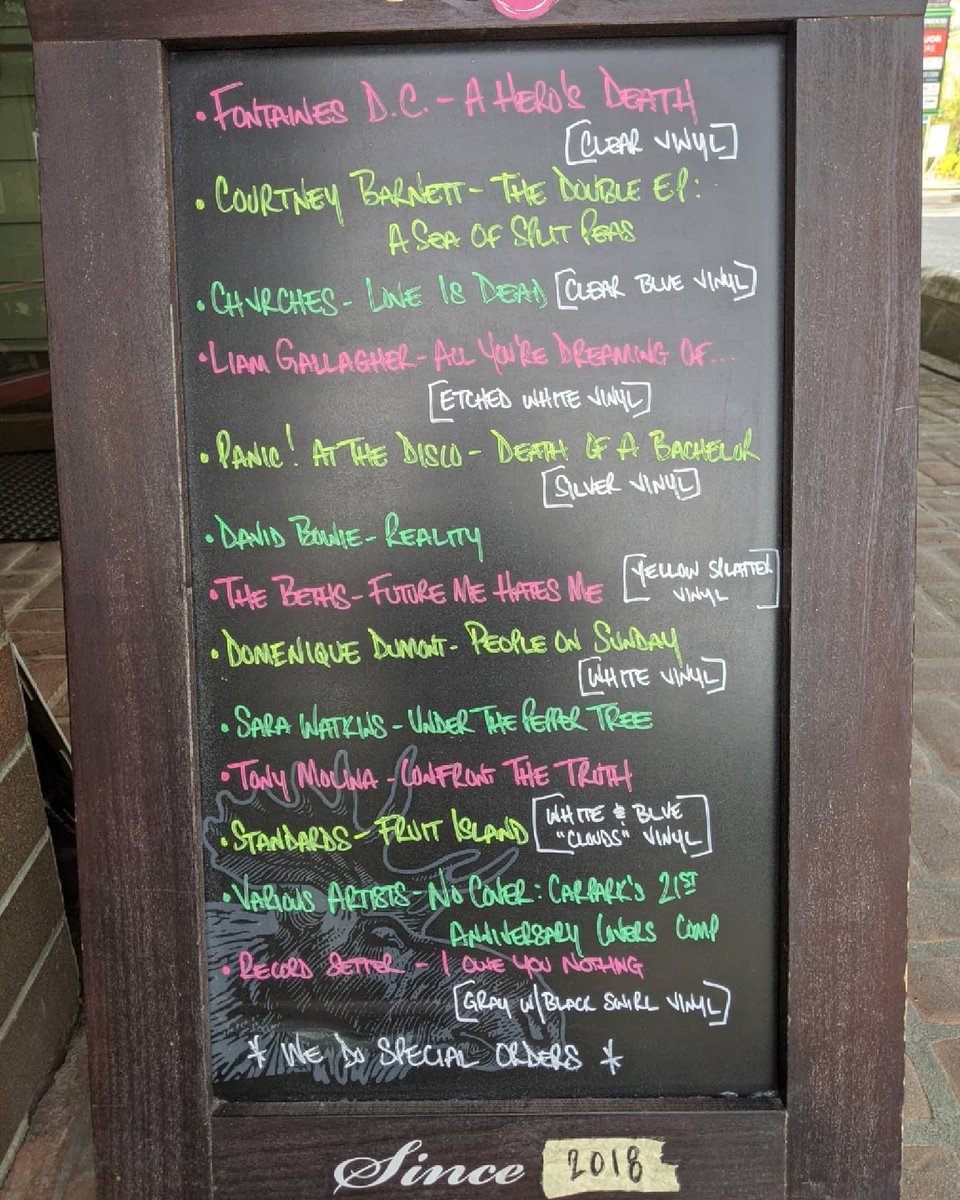 • FONTAINES D.C. - A HERO'S DEATH
[CLEAR VINYL]
• COURTNEY BARNETT - THE DOUBLE EP:
A SEA OF SPLIT PEAS
• CHVRCHES - LOVE IS DEAD [CLEAR BLUE VINYL]
• LIAM GALLAGHER - ALL YOU'RE DREAMING OF...
[ETCHED WHITE VINYL]
• PANIC! AT THE DISCO - DEATH OF A BACHELOR
[SILVER VINYL]
• DAVID BOWIE - REALITY
• THE BETHS - FUTURE ME HATES ME [YELLOW SPLATTER
VINYL]
• DOMENIQUE DUMONT - PEOPLE ON SUNDAY
[WHITE VINYL]
• SARA WATKINS - UNDER THE PEPPER TREE
• TONY MOLINA - CONFRONT THE TRUTH
• STANDARDS - FRUIT ISLAND [WHITE & BLUE
"CLOUDS" VINYL]
• VARIOUS ARTISTS - NO COVER: CARPARK'S 21ST
ANNIVERSARY COVERS COMP
• RECORD SETTER - I OWE YOU NOTHING
[GRAY W/BLACK SWIRL VINYL]
* WE DO SPECIAL ORDERS *
Since 2018